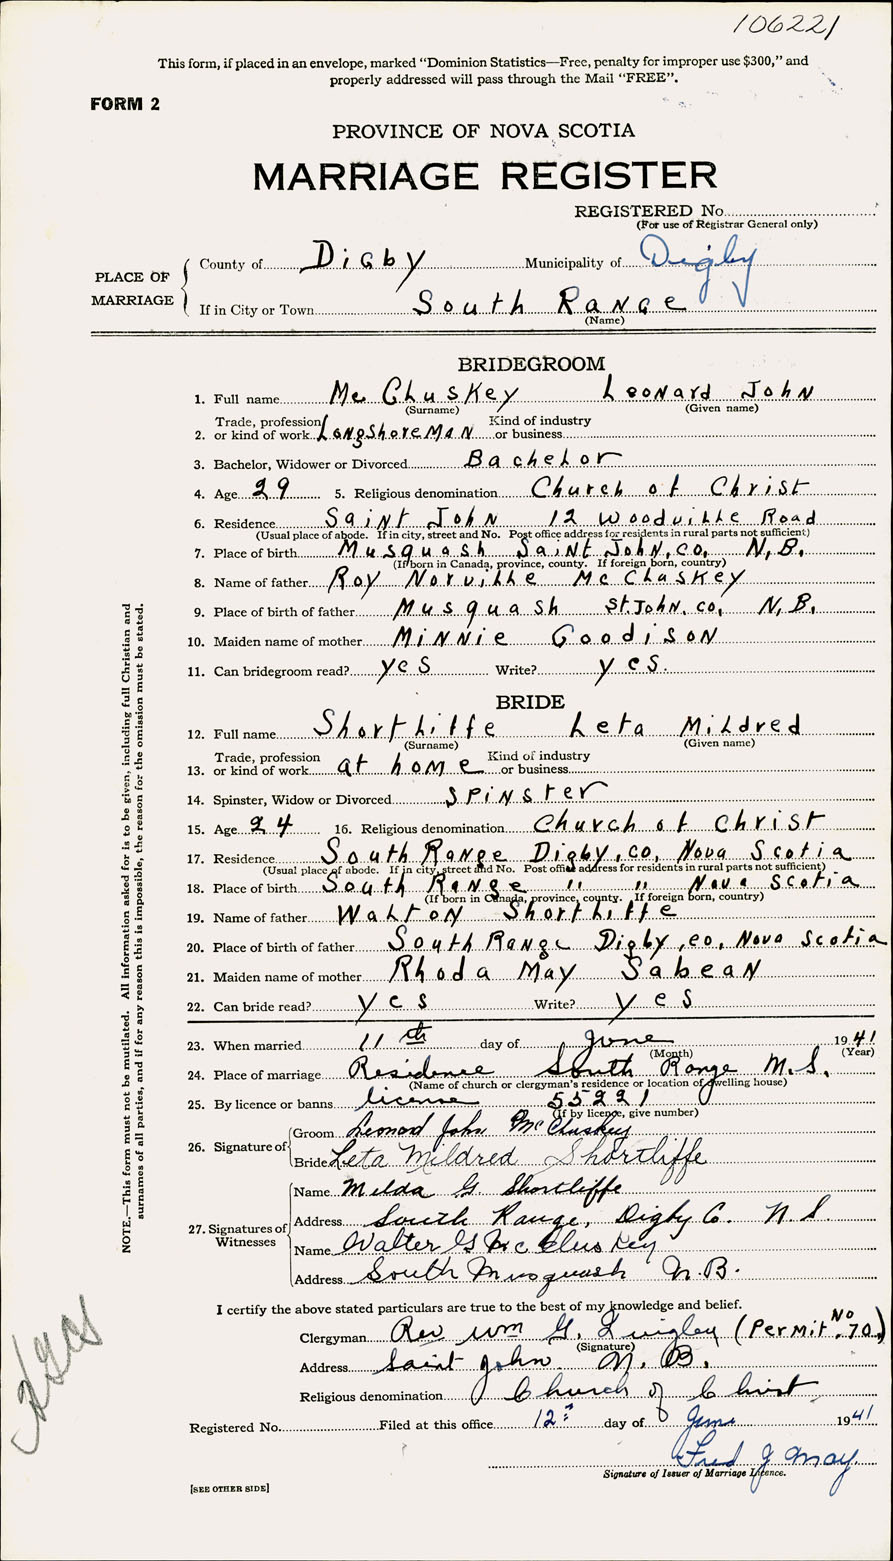 106221
This form, if placed in an envelope, marked “Dominion Statistics—Free, penalty for improper use $300,” and
properly addressed will pass through the Mail “FREE”.
FORM 2
PROVINCE OF NOVA SCOTIA
MARRIAGE REGISTER
REGISTERED No.
(For use of Registrar General only)
PLACE OF MARRIAGE
County of Digby Municipality of Digby
If in City or Town South Range
(Name)
BRIDEGROOM
1. Full name McCluskey Leonard John
(Surname) (Given name)
2. Trade, profession or kind of work Longshoreman Kind of industry or business
3. Bachelor, Widower or Divorced Bachelor
4. Age 29 5. Religious denomination Church of Christ
6. Residence Saint John 12 Woodville Road
(Usual place of abode. If in city, street and No. Post office address for residents in rural parts not sufficient)
7. Place of birth Musquash Saint John, co, N,B,
(If born in Canada, province, county. If foreign born, country)
8. Name of father Roy Norville McCluskey
9. Place of birth of father Musquash St. John, co, N,B,
10. Maiden name of mother Minnie Goodison
11. Can bridegroom read? yes Write? yes.
BRIDE
12. Full name Shortliffe Leta Mildred
(Surname) (Given name)
13. Trade, profession or kind of work at home Kind of industry or business
14. Spinster, Widow or Divorced Spinster
15. Age 24 16. Religious denomination Church of Christ
17. Residence South Range Digby, co, Nova Scotia
(Usual place of abode. If in city, street and No. Post office address for residents in rural parts not sufficient)
18. Place of birth South Range " " Nova Scotia
(If born in Canada, province, county. If foreign born, country)
19. Name of father Walton Shortliffe
20. Place of birth of father South Range Digby, co, Nova Scotia
21. Maiden name of mother Rhoda May Sabean
22. Can bride read? yes Write? yes
23. When married 11th day of June 1941
(Month) (Year)
24. Place of marriage Residence South Range N.S.
(Name of church or clergyman's residence or location of dwelling house)
25. By licence or banns license 55221
(If by licence, give number)
26. Signature of
Groom Leonard John McCluskey
Bride Leta Mildred Shortliffe
27. Signatures of Witnesses
Name Melda G. Shortliffe
Address South Range, Digby Co. N.S.
Name Walter G McCluskey
Address South Musquash N.B.
I certify the above stated particulars are true to the best of my knowledge and belief.
Clergyman Rev Wm G. (Permit No 70.)
(Signature)
Address Saint John N.B.
Religious denomination Church of Christ
Registered No. Filed at this office 12th day of June 1941
Fred J May.
Signature of Issuer of Marriage Licence.
[SEE OTHER SIDE]
NOTE.—This form must not be mutilated. All information asked for is to be given, including full Christian and
surnames of all parties, and if for any reason this is impossible, the reason for the omission must be stated.